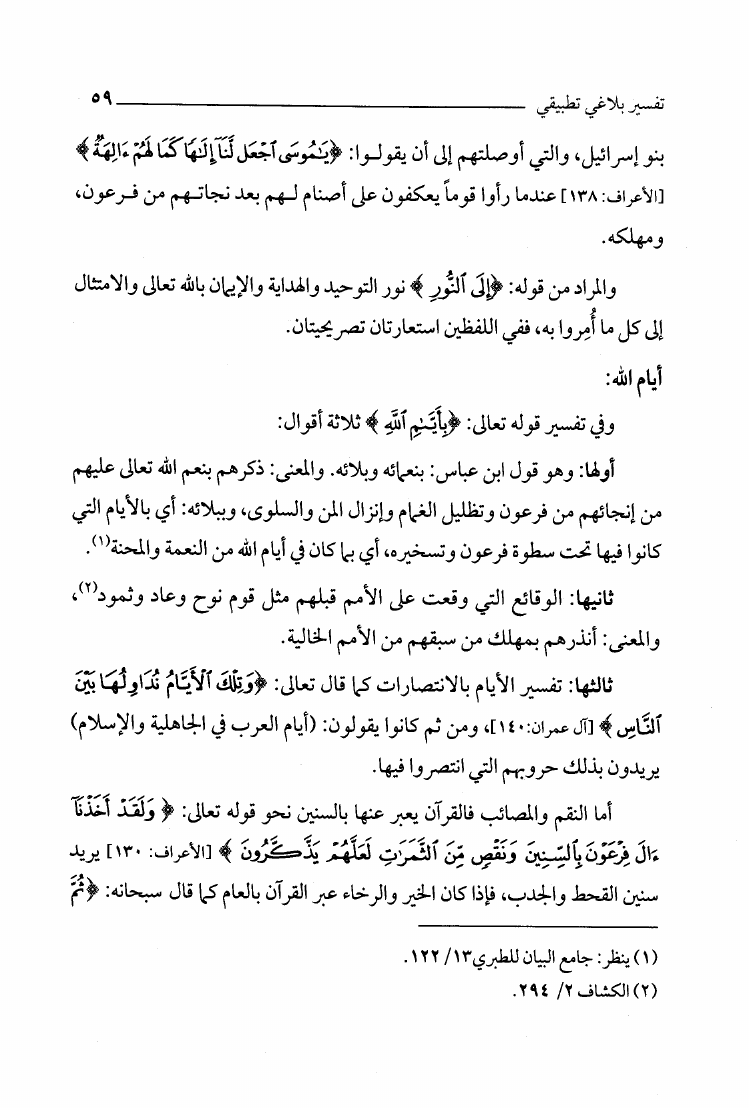 تفسير بلاغي تطبيقي ــــــــــ ٥٩
بنو إسرائيل، والتي أوصلتهم إلى أن يقولـوا: ﴿يَٰمُوسَى ٱجۡعَل لَّنَآ إِلَٰهٗا كَمَا لَهُمۡ ءَالِهَةٞ﴾
[الأعراف: ١٣٨] عندما رأوا قوماً يعكفون على أصنام لـهم بعد نجاتـهم من فـرعون،
ومهلكه.
والمراد من قوله: ﴿إِلَى ٱلنُّورِ﴾ نور التوحيد والهداية والإيمان بالله تعالى والامتثال
إلى كل ما أُمِروا به، ففي اللفظين استعارتان تصريحيتان.
أيام الله:
وفي تفسير قوله تعالى: ﴿بِأَيَّىٰمِ ٱللَّهِ﴾ ثلاثة أقوال:
أولها: وهو قول ابن عباس: بنعمائه وبلائه. والمعنى: ذكرهم بنعم الله تعالى عليهم
من إنجائهم من فرعون وتظليل الغمام وإنزال المن والسلوى، وببلائه: أي بالأيام التي
كانوا فيها تحت سطوة فرعون وتسخيره، أي بما كان في أيام الله من النعمة والمحنة(١).
ثانيها: الوقائع التي وقعت على الأمم قبلهم مثل قوم نوح وعاد وثمود(٢)،
والمعنى: أنذرهم بمهلك من سبقهم من الأمم الخالية.
ثالثها: تفسير الأيام بالانتصارات كما قال تعالى: ﴿وَتِلۡكَ ٱلۡأَيَّامُ نُدَاوِلُهَا بَيۡنَ
ٱلنَّاسِ﴾ [آل عمران:١٤٠]، ومن ثم كانوا يقولون: (أيام العرب في الجاهلية والإسلام)
يريدون بذلك حروبهم التي انتصروا فيها.
أما النقم والمصائب فالقرآن يعبر عنها بالسنين نحو قوله تعالى: ﴿وَلَقَدۡ أَخَذۡنَآ
ءَالَ فِرۡعَوۡنَ بِٱلسِّنِينَ وَنَقۡصٖ مِّنَ ٱلثَّمَرَٰتِ لَعَلَّهُمۡ يَذَّكَّرُونَ﴾ [الأعراف: ١٣٠] يريد
سنين القحط والجدب، فإذا كان الخير والرخاء عبر القرآن بالعام كما قال سبحانه: ﴿ثُمَّ
(١) ينظر: جامع البيان للطبري١٣/ ١٢٢.
(٢) الكشاف ٢/ ٢٩٤.